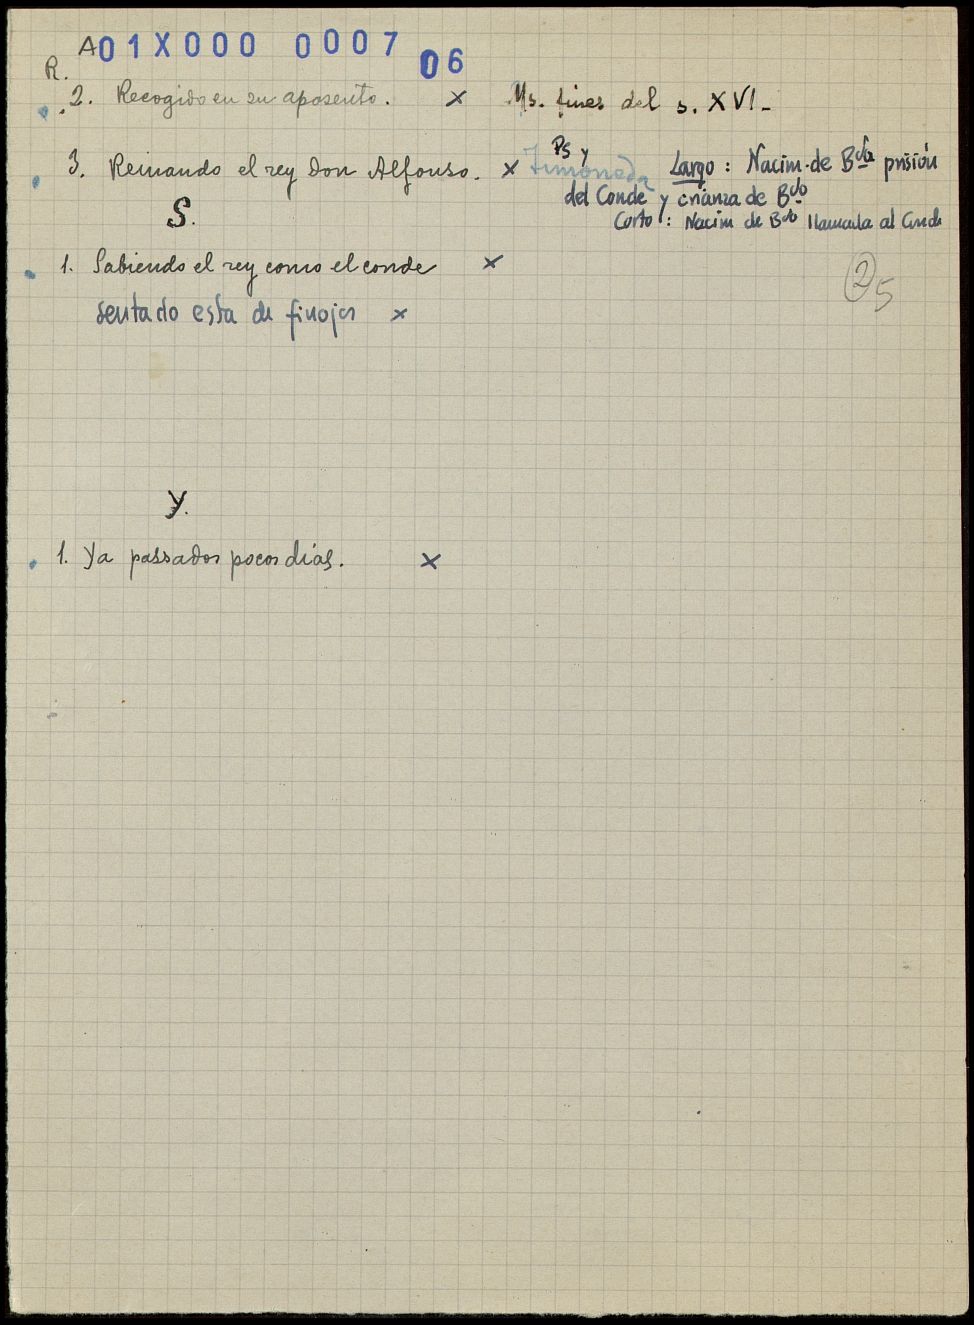 A01X000 0007 06
R.
2. Recogido en su aposento. x Ms. fines del s. XVI-
3. Reinando el rey don Alfonso. x PS y Timoneda Largo: Nacim. de Bdo prisión
del Conde y crianza de Bdo
Corto: Nacim de Bdo llamada al Conde
S.
1. Sabiendo el rey como el conde x
25
sentado esta de finojos x
Y.
1. Ya passados pocos días. x